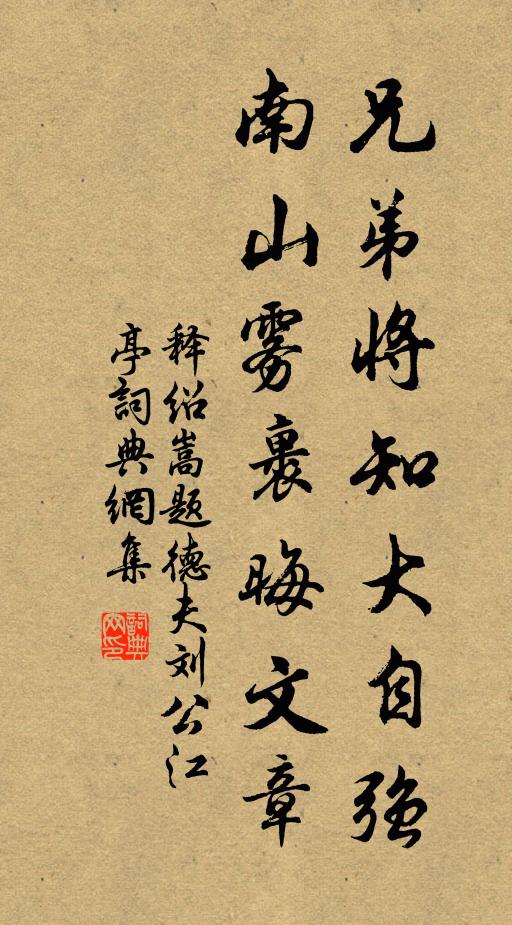 兄弟将知大自强
南山雾裹晦文章
释绍嵩题德夫刘公江
亭詞典網集
詞典
网印